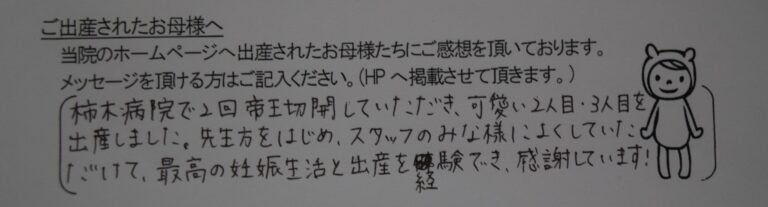 ご出産されたお母様へ
当院のホームページへ出産されたお母様たちにご感想を頂いております。
メッセージを頂ける方はご記入ください。(HPへ掲載させて頂きます。)
柿木病院で2回帝王切開していただき、可愛い2人目・3人目を
出産しました。先生方をはじめ、スタッフのみな様によくしていた
だけて、最高の妊娠生活と出産を経験でき、感謝しています!